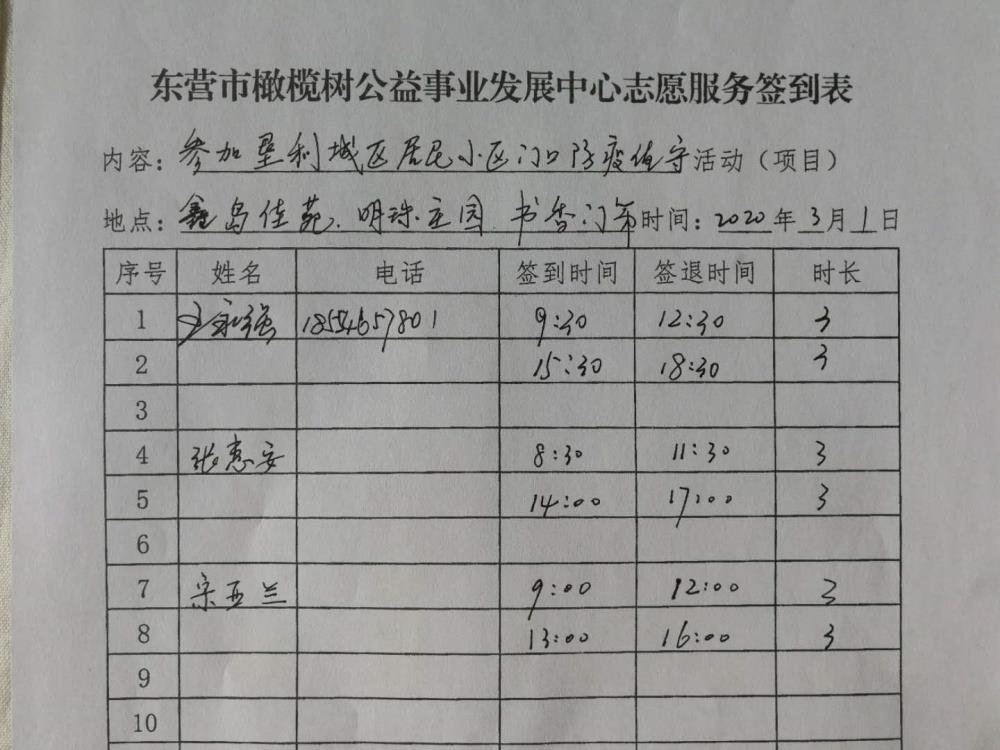 东营市橄榄树公益事业发展中心志愿服务签到表
内容：参加垦利城区居民小区门口防疫值守活动（项目）
地点：鑫岛佳苑、明珠庄园、书香门第时间：2020年3月1日
序号 姓名 电话 签到时间 签退时间 时长
1 永强 18554657801 9:30 12:30 3
2 15:30 18:30 3
3
4 张惠安 8:30 11:30 3
5 14:00 17:00 3
6
7 宋亚兰 9:00 12:00 3
8 13:00 16:00 3
9
10